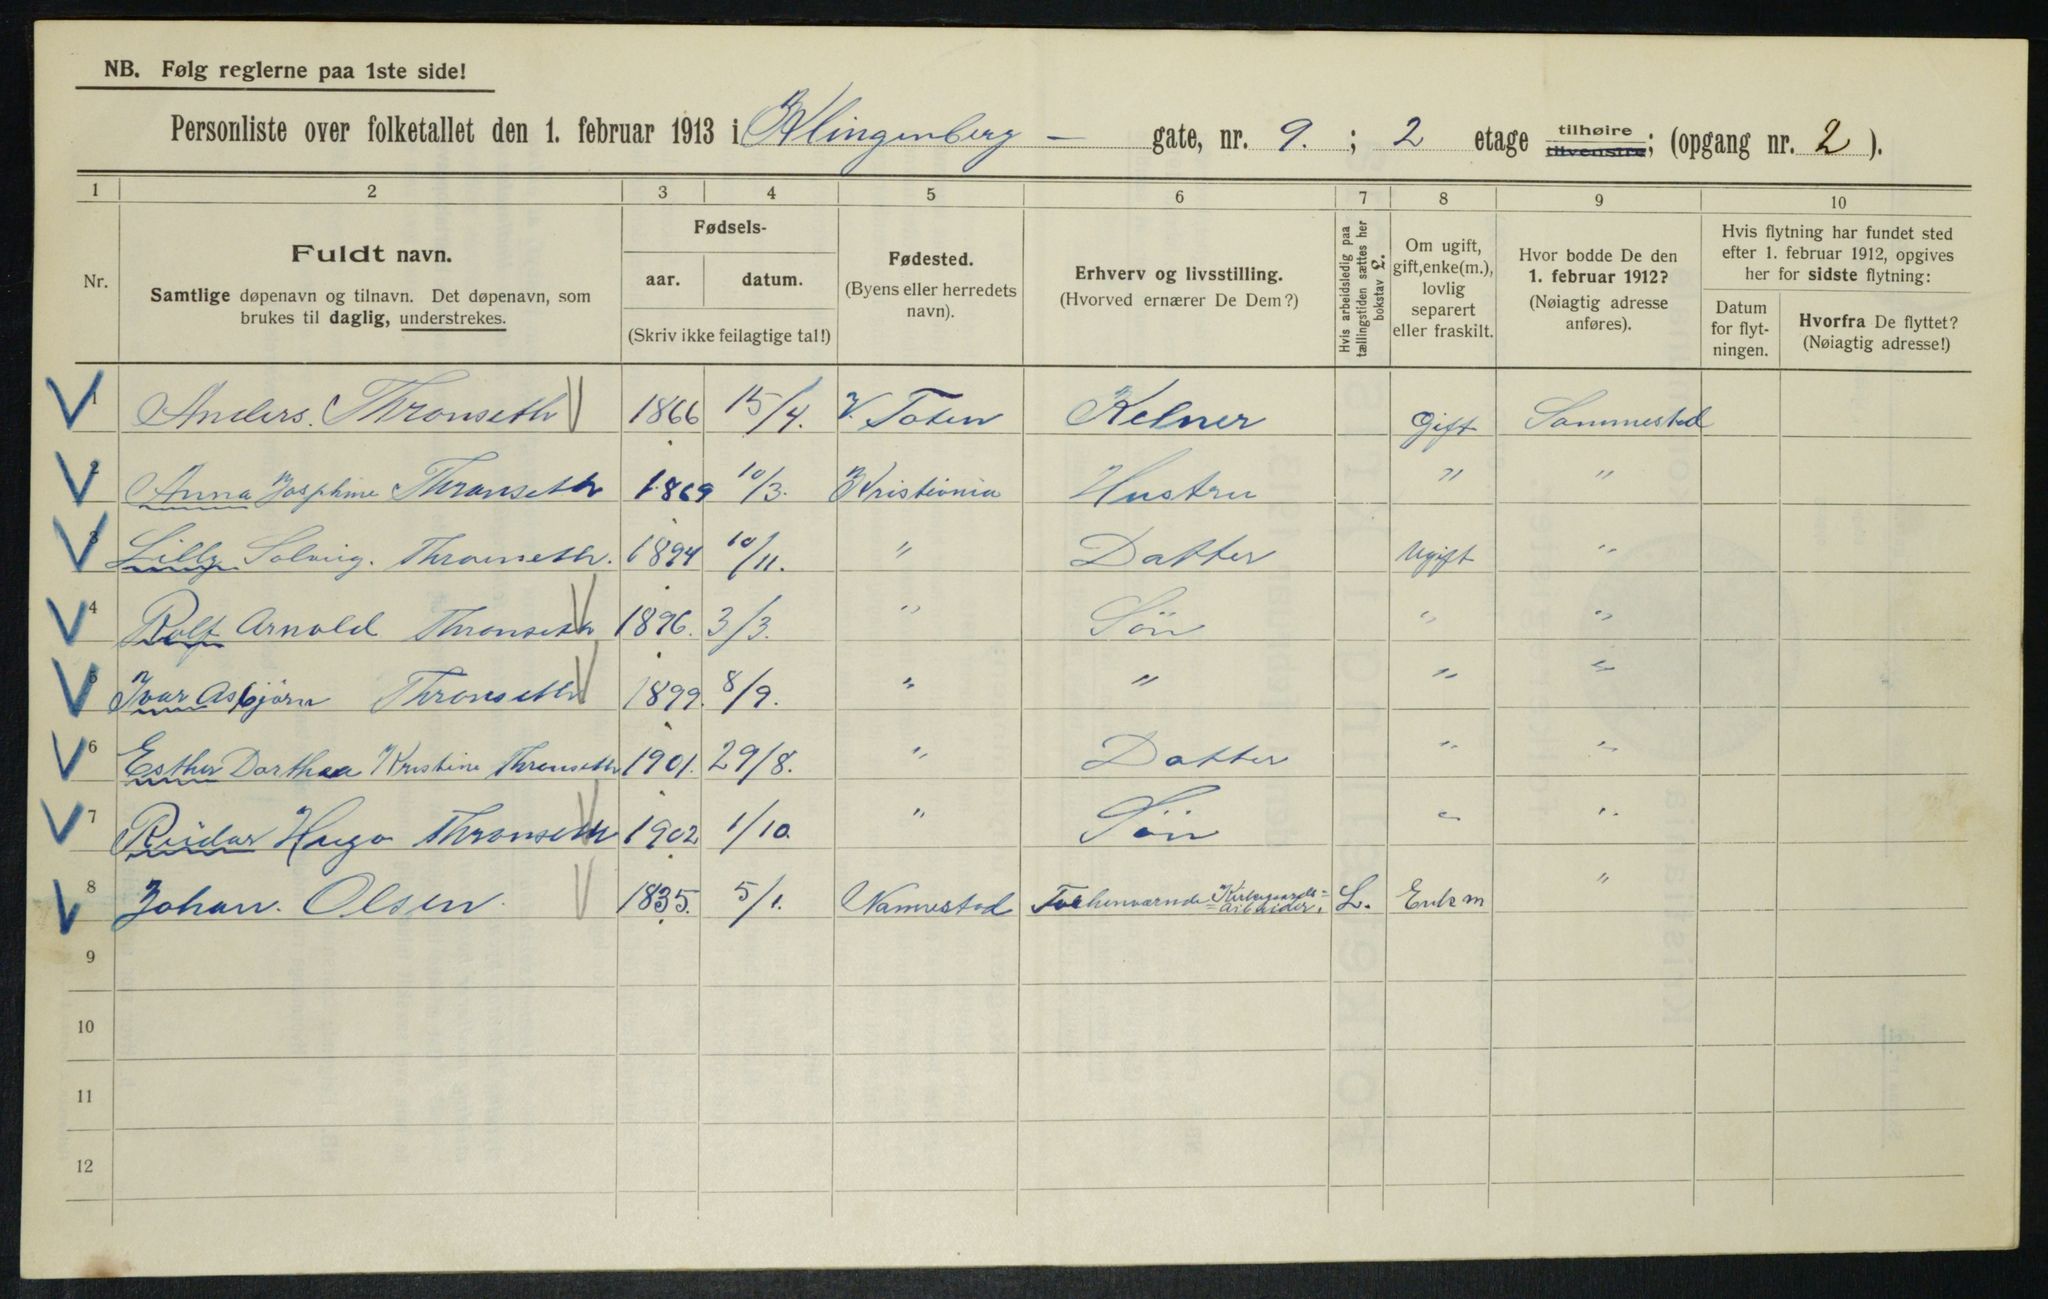 NB. Følg reglerne paa 1ste side!
Personliste over folketallet den 1. februar 1913 i Klingenberg – gate, nr. 9. ; 2 etage tilhøire tilvenstre; (opgang nr. 2 ).
1 2 3 4 5 6 7 8 9 10
Nr.
Fuldt navn.
Samtlige døpenavn og tilnavn. Det døpenavn, som
brukes til daglig, understrekes.
Fødsels-
aar. datum.
(Skriv ikke feilagtige tal!)
Fødested.
(Byens eller herredets
navn).
Erhverv og livsstilling.
(Hvorved ernærer De Dem?)
Hvis arbeidsledig paa
tællingstiden sættes her
bokstav L.
Om ugift,
gift, enke(m.),
lovlig
separert
eller fraskilt.
Hvor bodde De den
1. februar 1912?
(Nøiagtig adresse
anføres).
Hvis flytning har fundet sted
efter 1. februar 1912, opgives
her for sidste flytning:
Datum
for flyt-
ningen.
Hvorfra De flyttet?
(Nøiagtig adresse!)
1 Anders. Thronseth 1866 15/4. V. Toten Kelner Gift Sammested
2 Anna Josphine Thronseth 1869 10/3. Kristiania Hustru " "
3 Lilly Solveig. Thronseth. 1894 10/11. " Datter Ugift "
4 Rolf Arnold Thronseth 1896. 3/3. " Sön " "
5 Ivar Asbjörn Thronseth 1899. 8/9. " " " "
6 Esther Dorthea Kristine Thronseth 1901. 29/8. " Datter " "
7 Reidar Hugo Thronseth 1902 1/10. " Sön " "
8 Johan. Olsen. 1835. 5/1. Nannestad L. Enkm "
9
10
11
12